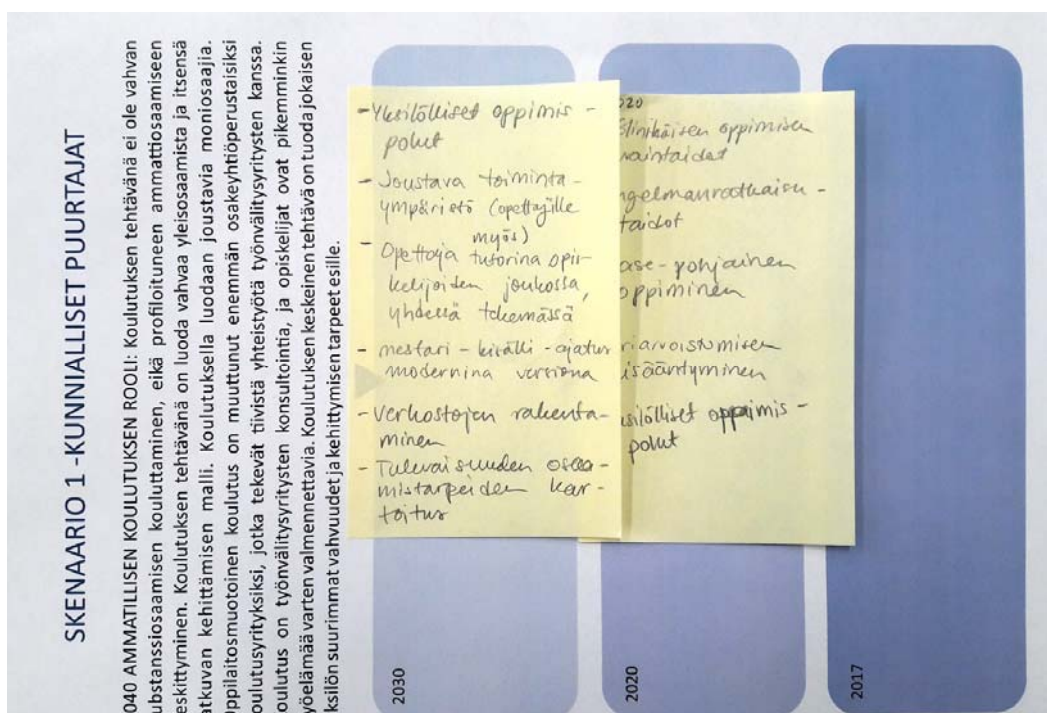 SKENAARIO 1 -KUNNIALLISET PUURTAJAT
040 AMMATILLISEN KOULUTUKSEN ROOLI: Koulutuksen tehtävänä ei ole vahvan
ubstanssiosaamisen kouluttaminen, eikä profiloituneen ammattiosaamiseen
eskittyminen. Koulutuksen tehtävänä on luoda vahvaa yleisosaamista ja itsensä
atkuvan kehittämisen malli. Koulutuksella luodaan joustavia moniosaajia.
Oppilaitosmuotoinen koulutus on muuttunut enemmän osakeyhtiöperustaisiksi
oulutusyrityksiksi, jotka tekevät tiivistä yhteistyötä työnvälitysyritysten kanssa.
oulutus on työnvälitysyritysten konsultointia, ja opiskelijat ovat pikemminkin
yöelämää varten valmennettavia. Koulutuksen keskeinen tehtävä on tuoda jokaisen
ksilön suurimmat vahvuudet ja kehittymisen tarpeet esille.
2030
- Yksilölliset oppimis -
polut
- Joustava toiminta-
ympäristö (opettajille
myös)
- Opettaja tutorina opis-
kelijoiden joukossa,
yhdessä tekemässä
- mestari - kisälli - ajatus
modernina versiona
- Verkostojen rakenta-
minen
- Tulevaisuuden osaa-
mistarpeiden kar-
toitus
2020
020
Elinikäisen oppimisen
vaintaidot
ngelmanratkaisu -
taidot
ase - pohjainen
oppiminen
riarvoistumisen
isääntyminen
ksilölliset oppimis -
polut
2017